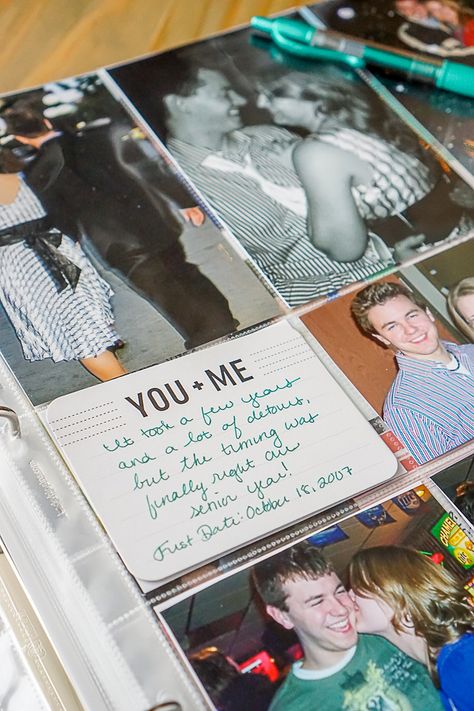 YOU + ME
It took a few years
and a lot of detours,
but the timing was
finally right our
senior year!
First Date: October 18, 2007